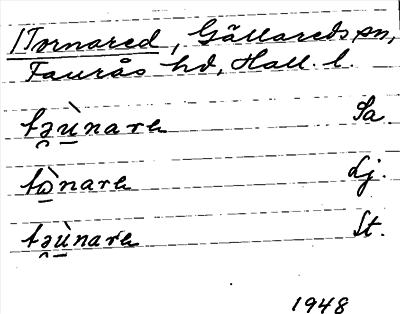 1 Tornared, Gällareds sn,
Faurås hd, Hall. l.
tə̯ù̲narɘ Sa
tò̲narɘ Lj.
tə̯ù̲narɘ St.
1948